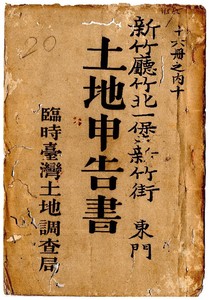 十六冊之內十
新竹廳竹北一堡新竹街 東門
土地申告書
臨時臺灣土地調查局
20